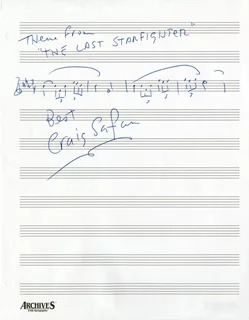 Theme from
"THE LAST STARFIGHTER"
Best
Craig Safan
ARCHIVES